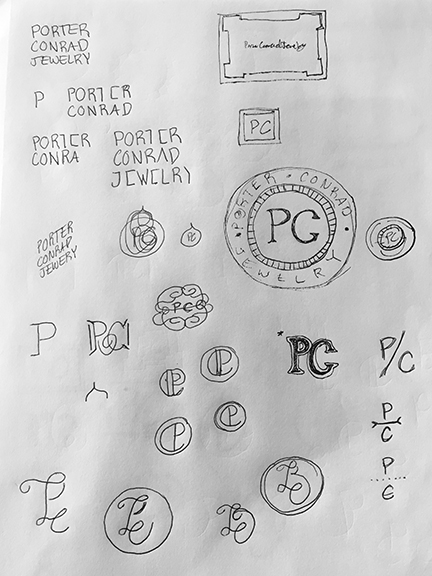 PORTER
CONRAD
JEWELRY
P PORTER
CONRAD
PORTER
CONRA
PORTER
CONRAD
JEWELRY
PC
PORTER · CONRAD · JEWELRY ·
PC
PORTER
CONRAD
JEWELRY
PC
PC
PC
P
PCJ
PC
*PC
P/C
P
C
P
C